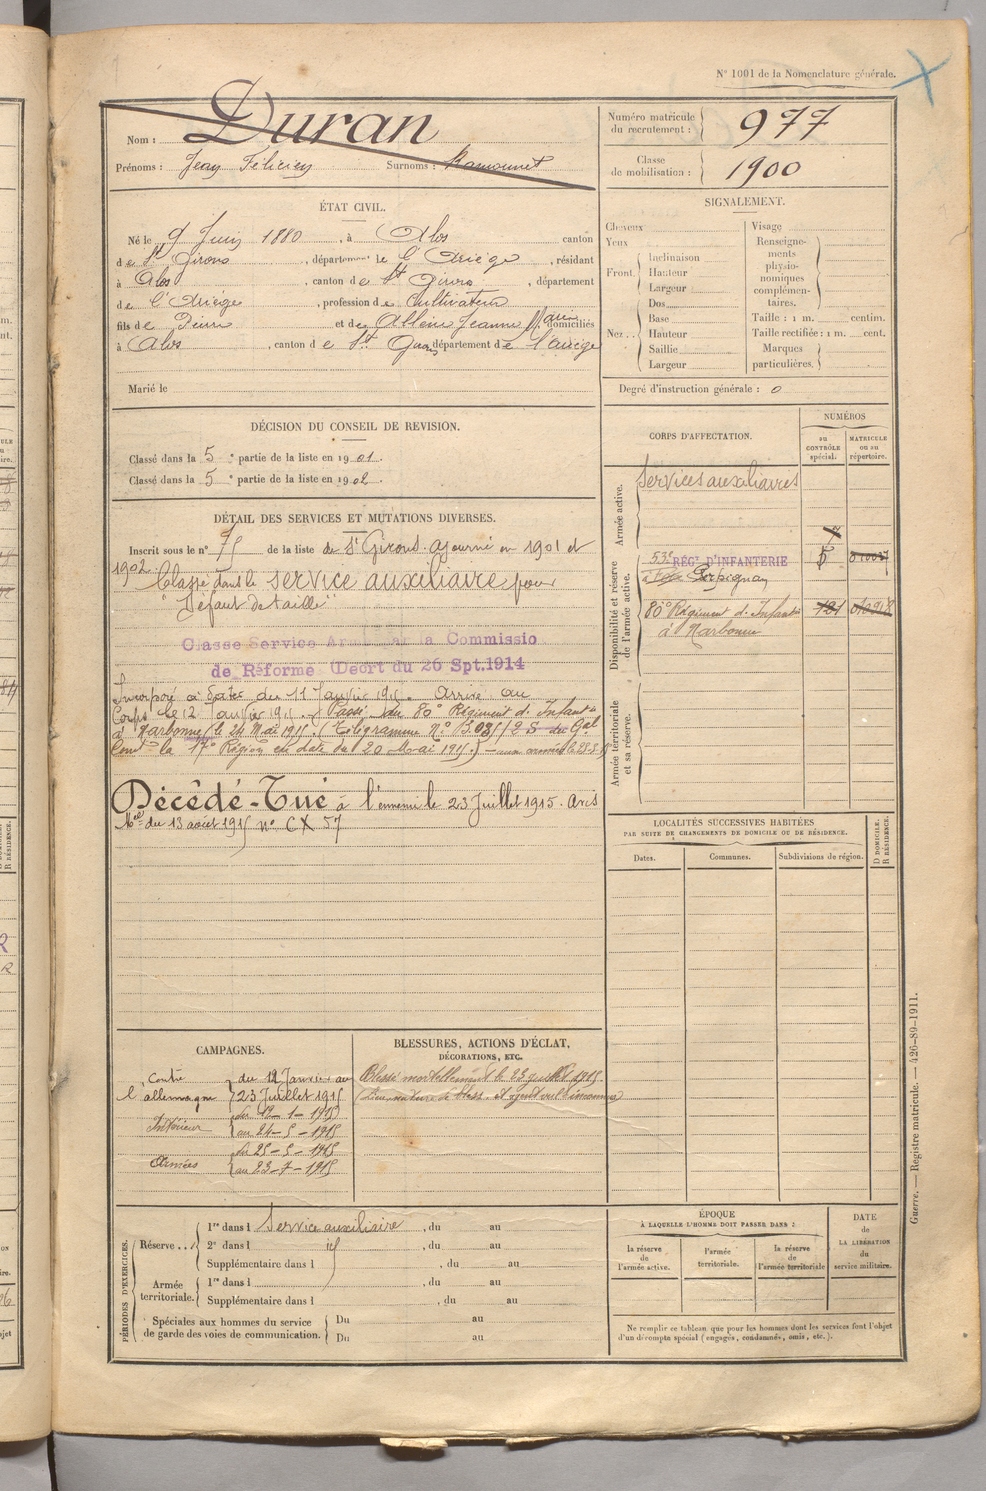 N° 1001 de la Nomenclature générale.
Nom : Duran
Prénoms : Jean Félicien Surnoms : Ramounet
Numéro matricule du recrutement : 977
Classe de mobilisation : 1900
ÉTAT CIVIL.
Né le 9 Juin 1880, à Alos canton
de St Girons, département de l'Ariège, résidant
à Alos, canton de St Girons, département
de l'Ariège, profession de Cultivateur
fils de Pierre et de Allein Jeanne Marie domiciliés
à Alos, canton de St Girons département de l'Ariège
Marié le
SIGNALEMENT.
Cheveux
Yeux
Front.
Inclinaison
Hauteur
Largeur
Nez..
Dos
Base
Hauteur
Saillie
Largeur
Visage
Renseigne-
ments
physio-
nomiques
complémen-
taires.
Taille : 1 m. centim.
Taille rectifiée : 1 m. cent.
Marques
particulières.
Degré d'instruction générale : 0
DÉCISION DU CONSEIL DE REVISION.
Classé dans la 5e partie de la liste en 1901.
Classé dans la 5e partie de la liste en 1902.
DÉTAIL DES SERVICES ET MUTATIONS DIVERSES.
Inscrit sous le n° 75 de la liste de St Girons. Ajourné en 1901 et
1902. Classé dans le service auxiliaire pour
"Défaut de taille"
Classe Service Armé par la Commissio
de Réforme (Decrt du 26 Spt.1914
Incorporé à dater du 11 Janvier 1915. Arrivé au
Corps le 12 Janvier 1915. Passé au 80e Régiment d'Infantie
à Narbonne le 24 Mai 1915. (Télégramme N°
Comt la 17e Région en date du 20 Mai 1915.)
Décédé-Tué à l'ennemi le 23 Juillet 1915. Avis
Mel du 13 août 1915 n° CX 57
CORPS D'AFFECTATION.
NUMÉROS
au CONTRÔLE spécial.
MATRICULE ou au répertoire.
Armée active.
Services auxiliaires
7
Disponibilité et réserve de l'armée active.
53e RÉGt D'INFANTERIE 5
à Perpignan
80e Régiment d'Infantie 121
à Narbonne
Armée territoriale et sa réserve.
LOCALITÉS SUCCESSIVES HABITÉES
PAR SUITE DE CHANGEMENTS DE DOMICILE OU DE RÉSIDENCE.
Dates.
Communes.
Subdivisions de région.
D DOMICILE.
R RÉSIDENCE.
CAMPAGNES.
Contre l'allemagne du 12 Janvier au
23 Juillet 1915
Intérieur du 12-1-1915
au 24-5-1915
Armées du 25-5-1915
au 23-7-1915
BLESSURES, ACTIONS D'ÉCLAT,
DÉCORATIONS, ETC.
Blessé mortellement le 23 juillet 1915.
PÉRIODES D'EXERCICES.
Réserve...
1re dans l Service auxiliaire, du au
2e dans l id, du au
Supplémentaire dans l , du au
Armée territoriale.
1re dans l , du au
Supplémentaire dans l , du au
Spéciales aux hommes du service
de garde des voies de communication.
Du au
Du au
ÉPOQUE
À LAQUELLE L'HOMME DOIT PASSER DANS :
la réserve de l'armée active.
l'armée territoriale.
la réserve de l'armée territoriale
DATE de LA LIBÉRATION du service militaire.
Ne remplir ce tableau que pour les hommes dont les services font l'objet
d'un décompte spécial (engagés, condamnés, omis, etc.).
Guerre. — Registre matricule. — 426-89-1911.